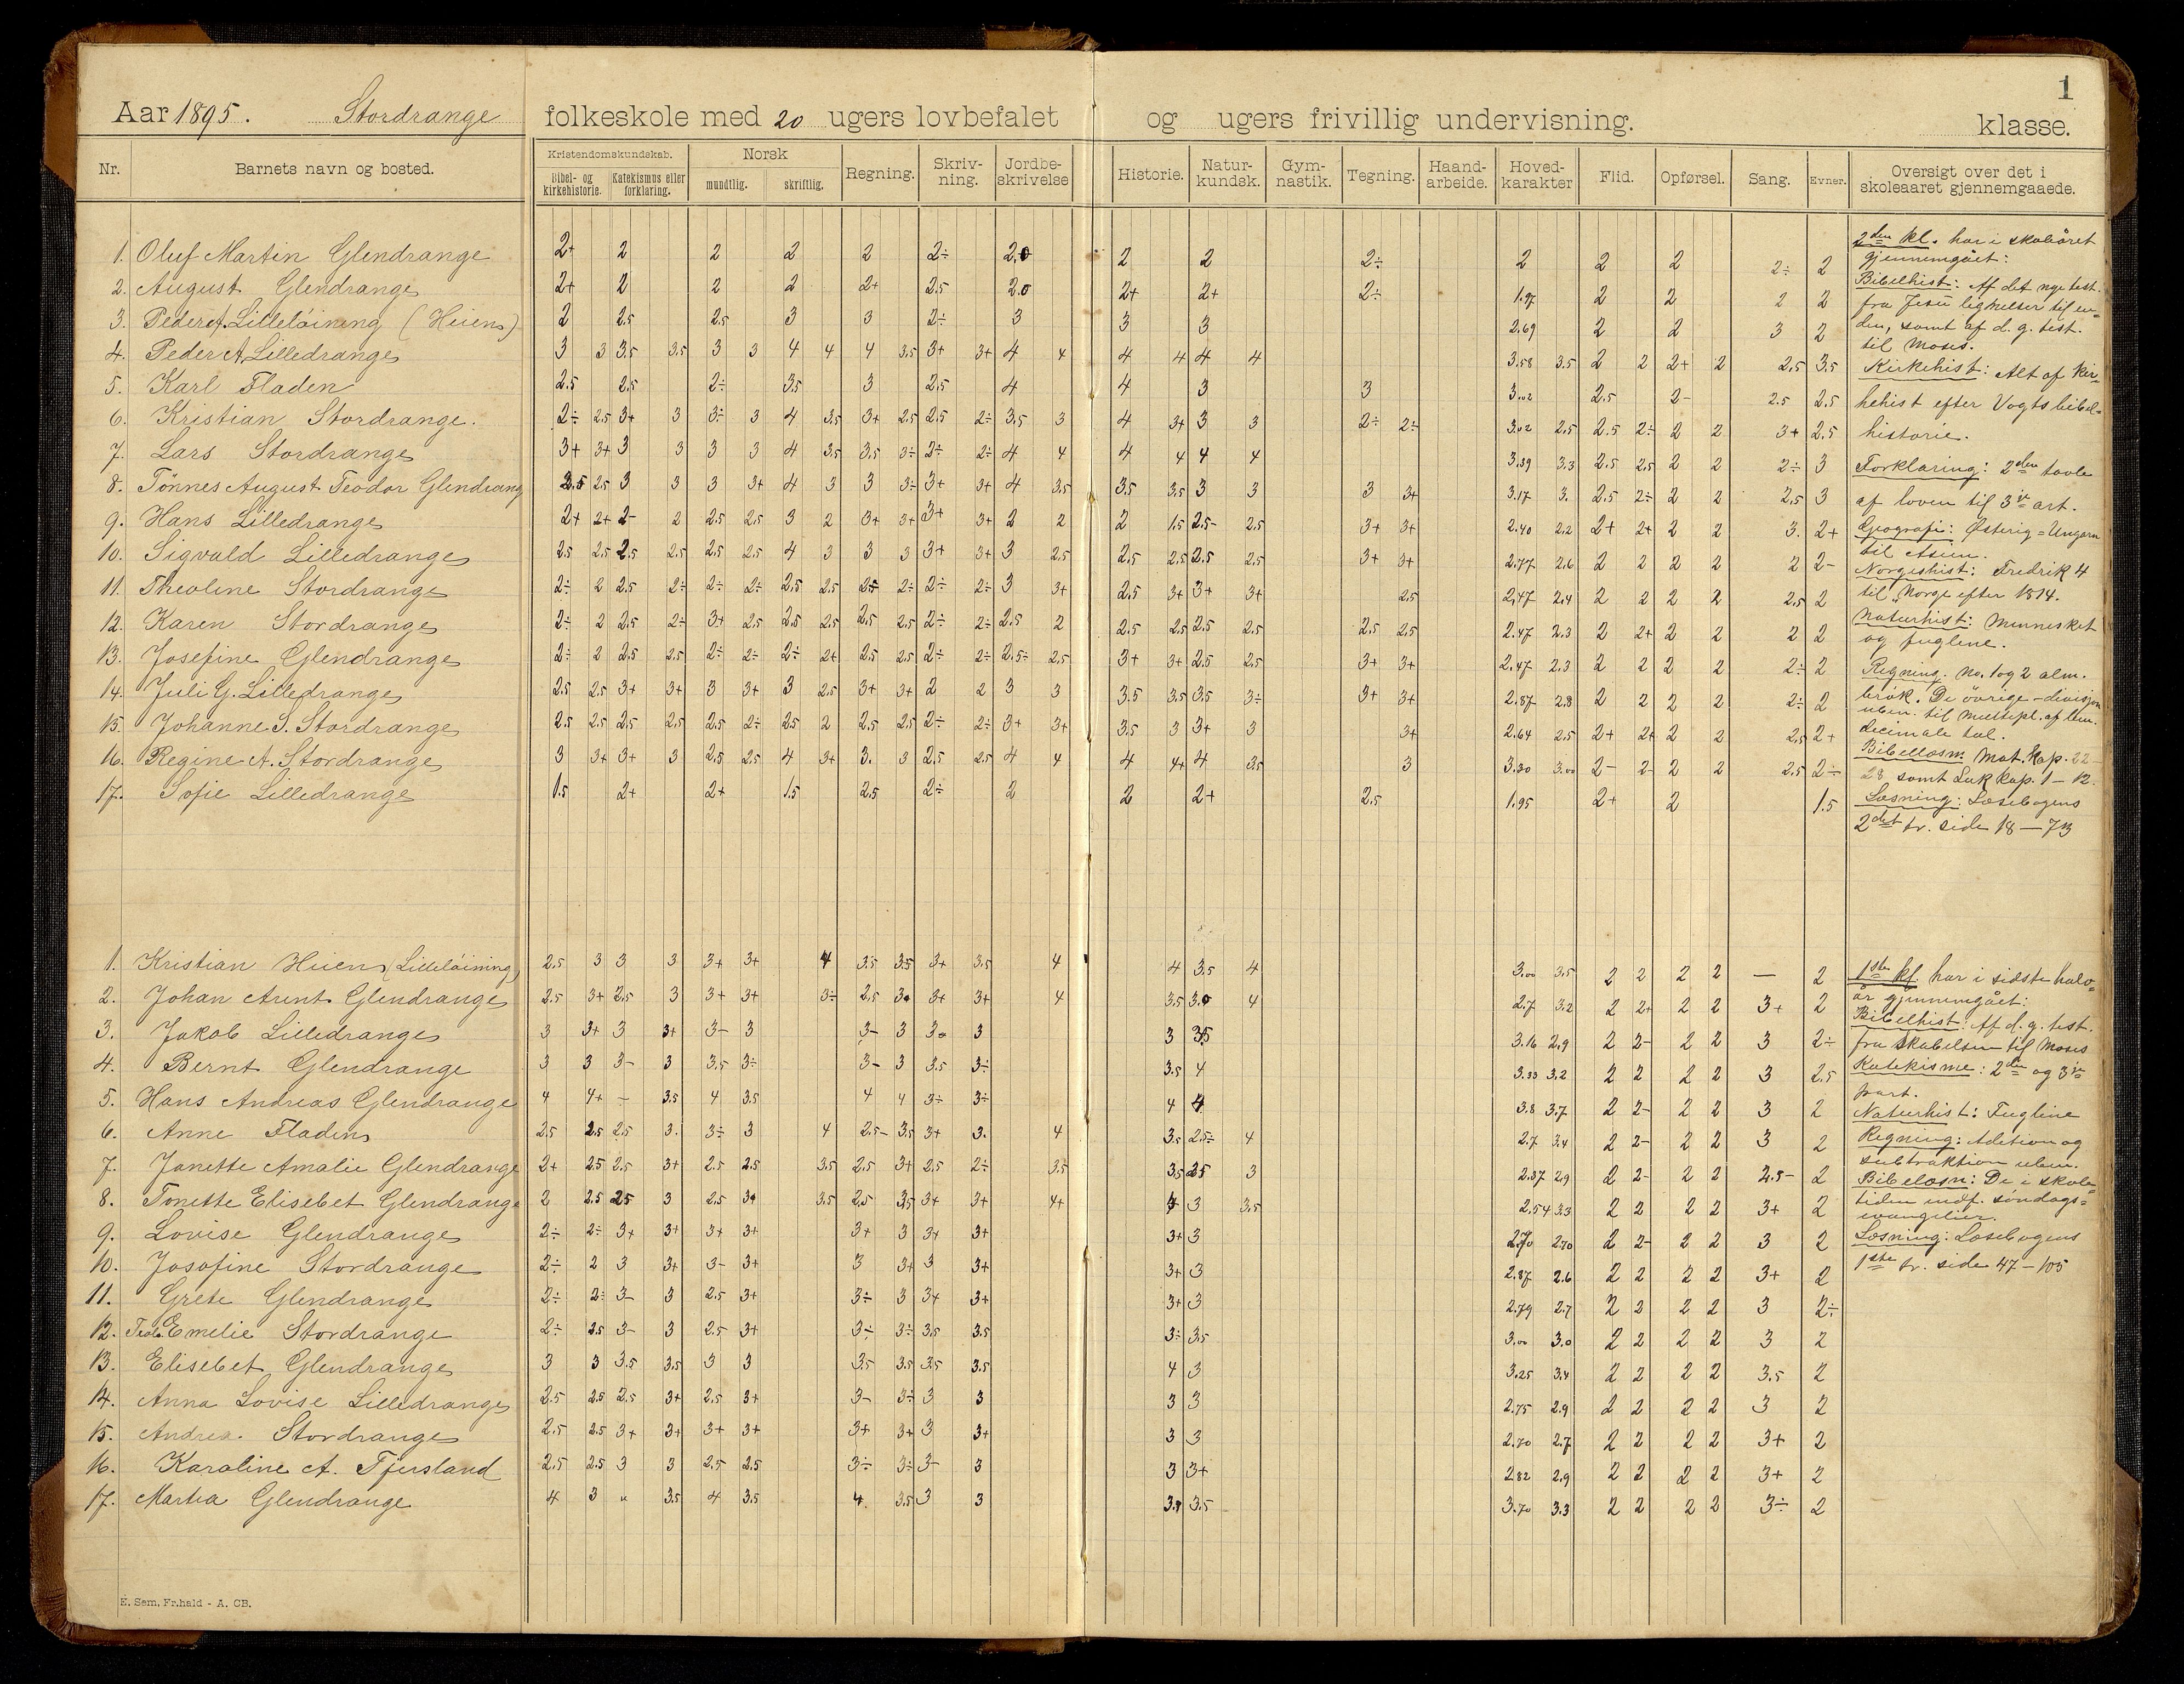 1
Aar 1895. Stordrange folkeskole med 20 ugers lovbefalet og ugers frivillig undervisning. klasse.
Nr. Barnets navn og bosted. Kristendomskundskab. Norsk Regning. Skriv-ning. Jordbe-skrivelse Historie. Natur-kundsk. Gym-nastik. Tegning. Haand-arbeide. Hoved-karakter Flid. Opførsel. Sang. Evner. Oversigt over det i skoleaaret gjennemgaaede.
Bibel- og kirkehistorie. Katekismus eller forklaring. mundtlig. skriftlig.
1. Oluf Martin Glendrange 2+ 2 2 2 2 2÷ 2.0 2 2 2÷ 2 2 2 2÷ 2
2. August Glendrange 2+ 2 2 2 2+ 2.5 2.0 2+ 2+ 2÷ 1.97 2 2 2 2
3. Peder A. Lilleløining (Heien) 2 2.5 2.5 3 3 2÷ 3 3 3 2.69 2 2 3 2
4. Peder A. Lilledrange 3 3 3.5 3.5 3 3 4 4 4 3.5 3+ 3+ 4 4 4 4 4 4 3.58 3.5 2 2 2+ 2 2.5 3.5
5. Karl Fladen 2.5 2.5 2÷ 3.5 3 2.5 4 4 3 3 3.02 2.5 2- 2.5 2.5
6. Kristian Stordrange. 2÷ 2.5 3+ 3 3÷ 3 4 3.5 3+ 2.5 2.5 2÷ 3.5 3 4 3+ 3 3 2÷ 2÷ 3.02 2.5 2.5 2÷ 2 2 3+ 2.5
7. Lars Stordrange 3+ 3+ 3 3 3 3 4 3.5 3.5 3÷ 2÷ 2÷ 4 4 4 4 4 4 3.39 3.3 2.5 2.5 2 2 2÷ 3
8. Tönnes August Teodor Glendrang 2.5 2.5 3 3 3 3+ 4 3 3 3÷ 3+ 3+ 4 3.5 3.5 3.5 3 3 3 3+ 3.17 3. 2.5 2÷ 2 2 2.5 3
9. Hans Lilledrange 2+ 2+ 2- 2 2.5 2.5 3 2 3+ 3+ 3+ 3+ 2 2 2 1.5 2.5- 2.5 3+ 3+ 2.40 2.2 2+ 2+ 2 2 3. 2+
10. Sigvald Lilledrange 2.5 2.5 2.5 2.5 2.5 2.5 4 3 3 3 3+ 3+ 3 2.5 2.5 2.5 2.5 2.5 3+ 3+ 2.77 2.6 2 2 2 2 2 2-
11. Theoline Stordrange 2÷ 2 2.5 2÷ 2÷ 2÷ 2.5 2.5 2.5 2÷ 2÷ 2÷ 3 3+ 2.5 3+ 3+ 3+ 2.5 2.47 2.4 2 2 2 2 2.5 2
12. Karen Stordrange 2÷ 2 2.5 2÷ 3+ 2.5 2.5 2.5 2.5 2.5 2÷ 2÷ 2.5 2 2.5 2.5 2.5 2.5 2.5 2.5 2.47 2.3 2 2+ 2 2 2 2
13. Josefine Glendrange 2÷ 2 2.5 2.5 2÷ 2÷ 2÷ 2+ 2.5 2.5 2÷ 2÷ 2.5÷ 2.5 3+ 3+ 2.5 2.5 3+ 3+ 2.47 2.3 2 2 2 2 2÷ 2
14. Juli G. Lilledrange 2.5 2.5 3+ 3+ 3 3+ 3 2.5 3+ 3+ 2 2 3 3 3.5 3.5 3.5 3÷ 3+ 3+ 2.87 2.8 2 2 2 2 2÷ 2
15. Johanne S. Stordrange 2.5 2.5 2.5 2.5 2.5 2÷ 2.5 2 2.5 2.5 2÷ 2÷ 3+ 3+ 3.5 3 3+ 3 3+ 2.64 2.5 2+ 2+ 2 2 2.5 2+
16. Regine A. Stordrange 3 3+ 3+ 3 2.5 2.5 4 3+ 3. 3 2.5 2.5 4 4 4 4+ 4 3.5 3 3.30 3.00 2- 2- 2 2 2.5 2÷
17. Sofie Lilledrange 1.5 2+ 2+ 1.5 2.5 2÷ 2 2 2+ 2.5 1.95 2+ 2 1.5
2den kl. har i skoleåret
gjennemgået:
Bibelhist: Af det nye test.
fra Jesu lignelser til en=
den, samt af d. g. test.
til Moses.
Kirkehist: Alt af kir=
kehist efter Vogts bibel=
historie.
Forklaring: 2den tavle
af loven til 3die art.
Geografi: Østerig=Ungarn
til Asien.
Norgeshist: Fredrik 4
til Norge efter 1814.
Naturhist: Mennesket
og fuglene.
Regning. No. 1 og 2 alm.
brök. De övrige - divisjon
uben. til multipl. af ben.
decimale tal.
Bibellæsn. Mat. Kap. 22-
28 samt Luk kap. 1-12.
Læsning: Læsebogens
2det tr. side 18-73
1. Kristian Heien (Lilleløining) 2.5 3 3 3 3+ 3+ 4 3.5 3.5 3+ 3.5 4 4 3.5 4 3.00 3.5 2 2 2 2 — 2
2. Johan Arent Glendrange 2.5 3+ 2.5 3 3+ 3+ 3÷ 2.5 3+ 3+ 3+ 4 3.5 3.0 4 2.7 3.2 2 2+ 2 2 3+ 2
3. Jakob Lilledrange 3 3+ 3 3+ 3- 3 3- 3 3- 3 3 3.5 3.16 2.9 2 2- 2 2 3 2÷
4. Bernt Glendrange 3 3 3- 3 3.5 3÷ 3- 3 3.5 3÷ 3.5 4 3.33 3.2 2 2 2 2 3 2.5
5. Hans Andreas Glendrange 4 4+ - 3.5 4 3.5 4 4 3÷ 3÷ 4 4 3.8 3.7 2 2- 2 2 3 2
6. Anne Fladen 2.5 2.5 2.5 3. 3÷ 3 4 2.5- 3.5 3+ 3. 4 3.5 2.5÷ 4 2.7 3.4 2 2- 2 2 3 2
7. Janette Amalie Glendrange 2+ 2.5 2.5 3+ 2.5 2.5 3.5 2.5 3+ 2.5 2÷ 3.5 3.5 2.5 3 2.37 2.9 2 2- 2 2 2.5- 2
8. Tonette Elisebet Glendrange 2 2.5 2.5 3 2.5 3+ 3.5 2.5 3.5 3+ 3+ 4+ 4 3 3.5 2.54 3.3 2 2 2 2 3+ 2
9. Lovise Glendrange 2÷ 2÷ 3+ 3+ 3+ 3+ 3+ 3 3+ 3+ 3+ 3 2.70 2.70 2 2- 2 2 3 2
10. Josofine Stordrange 2÷ 2 3 3+ 3- 3+ 3 3+ 3 3+ 3+ 3 2.87 2.6 2 2 2 2 3+ 2
11. Grete Glendrange 2÷ 2÷ 3- 3 2.5 3+ 3÷ 3 3+ 3+ 3+ 3 2.79 2.7 2 2 2 2 3 2÷
12. Emelie Stordrange 2÷ 2.5 3- 3 2.5 3+ 3÷ 3÷ 3.5 3.5 3÷ 3.5 3.00 3.0 2 2 2 2 3 2
13. Elisebet Glendrange 3 3 3.5 3.5 3 3 3.5 3.5 3.5 3.5 4 3 3.25 3.4 2 2 2 2 3.5 2
14. Anna Lovise Lilledrange 2.5 2.5 2.5 3+ 2.5 3+ 3- 3÷ 3 3 3 3 2.75 2.9 2 2 2 2 3 2
15. Andrea. Stordrange 2.5 2.5 3+ 3+ 3+ 3+ 3+ 3+ 3 3+ 3 3 2.70 2.7 2 2 2 2 3+ 2
16. Karoline A. Tjersland 2.5 2.5 3 3 2.5 2.5 3÷ 3÷ 3- 3 3 3+ 2.82 2.9 2 2 2 2 3+ 2
17. Marta Glendrange 4 3 " 3.5 4 3.5 4. 3.5 3 3 3.5 3.70 3.3 2 2 2 2 3÷ 2
1ste kl. har i sidste halv=
år gjennemgået:
Bibelhist: Af d. g. test.
fra skabelsen til Moses
Katekisme: 2den og 3die
part.
Naturhist: Fuglene
Regning: Adetion og
subtraktion uben.
Bibellæsn: De i skole=
tiden indf. søndags=
evangelier.
Læsning: Læsebogens
1ste tr. side 47-105
E. Sem, Fr.hald - A. CB.